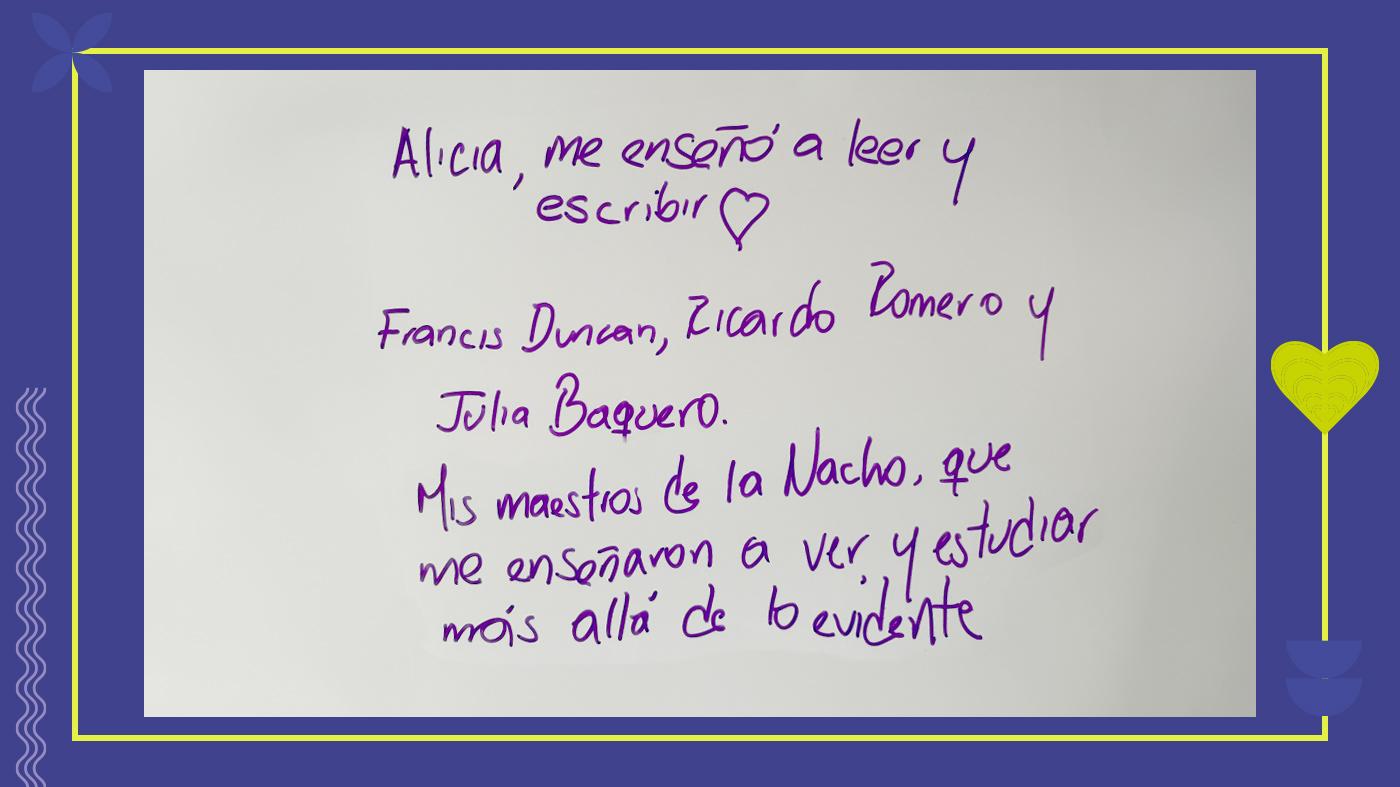 Alicia, me enseñó a leer y
escribir ♡
Francis Duncan, Ricardo Romero y
Julia Baquero.
Mis maestros de la Nacho, que
me enseñaron a ver, y estudiar
más allá de lo evidente